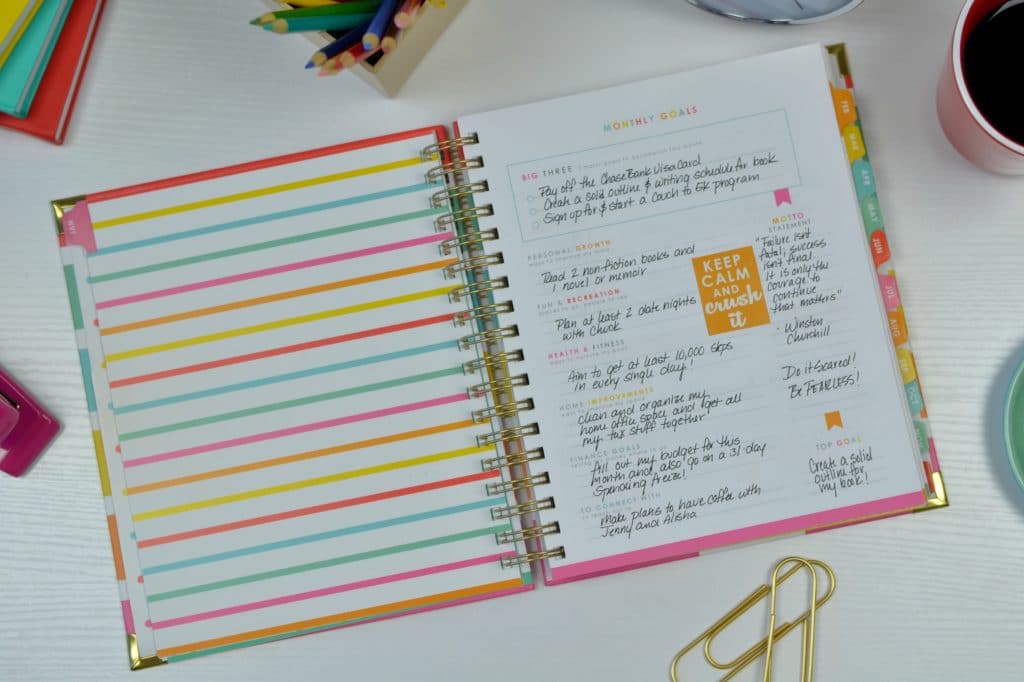 MONTHLY GOALS
BIG THREE
Pay off the Chase Bank Visa Card
Create a solid outline & writing schedule for book
Sign up for & start a Couch to 5K program
PERSONAL GROWTH
ways to improve my mind
Read 2 non-fiction books and
1 novel or memoir
FUN & RECREATION
places to go, people to see
Plan at least 2 date nights
with Chuck
HEALTH & FITNESS
ways to nurture my body
Aim to get at least 10,000 steps
in every single day!
HOME IMPROVEMENTS
ways to improve my space
clean and organize my
home office space and get all
my tax stuff together
FINANCE GOALS
Fill out my budget for this
month and also go on a 31 day
Spending freeze!
TO CONNECT WITH
Make plans to have coffee with
Jenny and Alisha
KEEP
CALM
AND
crush
it
MOTTO
STATEMENT
"Failure isn't
fatal; success
isn't final.
It is only the
courage to
continue
that matters."
- Winston
Churchill
Do it Scared!
Be FEARLESS!
TOP GOAL
Create a solid
outline for
my book!
FEB
MAR
APR
MAY
JUN
JUL
AUG